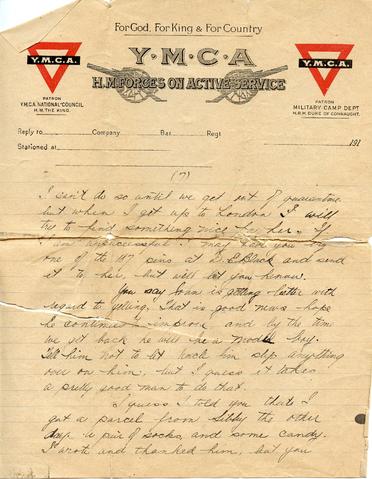 For God, For King & For Country
Y.M.C.A.
Y·M·C·A
Y.M.C.A.
H.M. FORCES ON ACTIVE SERVICE
PATRON
Y.M.C.A. NATIONAL COUNCIL
H.M. THE KING.
PATRON
MILITARY CAMP DEPT
H.R.H. DUKE OF CONNAUGHT.
Reply to Company Bat. Regt
Stationed at 191
(7)
I can't do so until we get out of quarantine
but when I get up to London I will
try to find something nice for her. If
I am unsuccessful I may have you buy
one of the 117 pins at D. E. Black and send
it to her, but will let you know.
You say is getting better with
regard to . That is good news - hope
he continues to improve, and by the time
we get back he will be a model boy.
Tell him not to let slip anything
over on him, but I guess it takes
a pretty good man to do that.
I guess I told you that I
got a parcel from Sibby the other
day. A pair of socks, and some candy.
I wrote and thanked him, but you